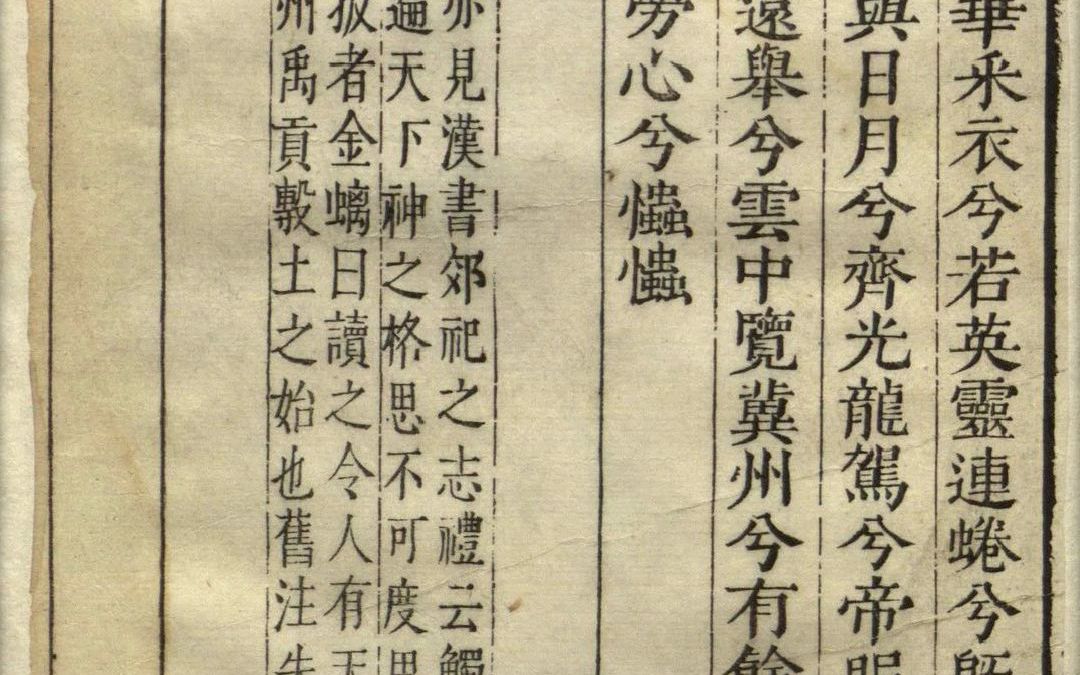 華采衣兮若英靈連蜷兮既
與日月兮齊光龍駕兮帝服
遠舉兮雲中覽冀州兮有餘
勞心兮𢥞𢥞
亦見漢書郊祀之志禮云觸
遍天下神之格思不可度思
者金螭曰讀之令人有天
州禹貢敷土之始也舊注